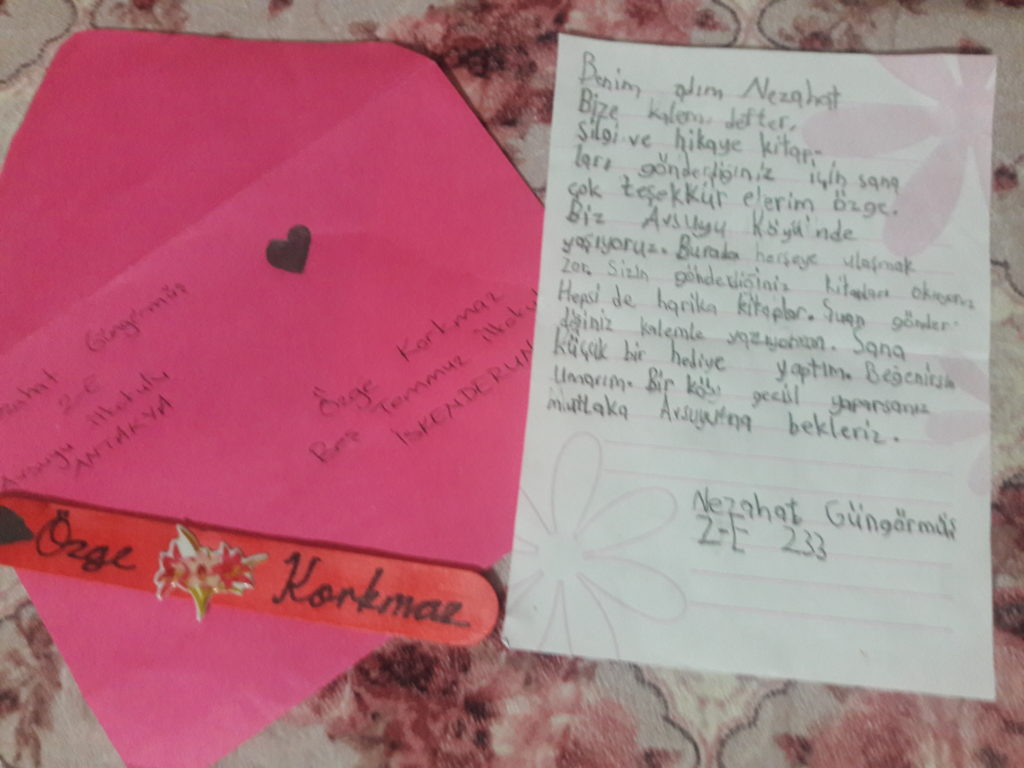 Nezahat Güngörmüş
2-E
Arsuyu İlkokulu
ANTAKYA
Özge Korkmaz
Beş Temmuz İlkokul
İSKENDERUN
Özge Korkmaz
Benim adım Nezahat
Bize kalem, defter,
silgi ve hikaye kitap-
ları gönderdiğiniz için sana
çok teşekkür ederim özge.
Biz Arsuyu Köyü'nde
yaşıyoruz. Burada herşeye ulaşmak
zor. Sizin gönderdiğiniz kitapları okuyoruz
Hepsi de harika kitaplar. Şuan gönder-
diğiniz kalemle yazıyorum. Sana
küçük bir hediye yaptım. Beğenirsin
umarım. Bir köy gezisi yaparsanız
mutlaka Arsuyu'na bekleriz.
Nezahat Güngörmüş
2-E 233